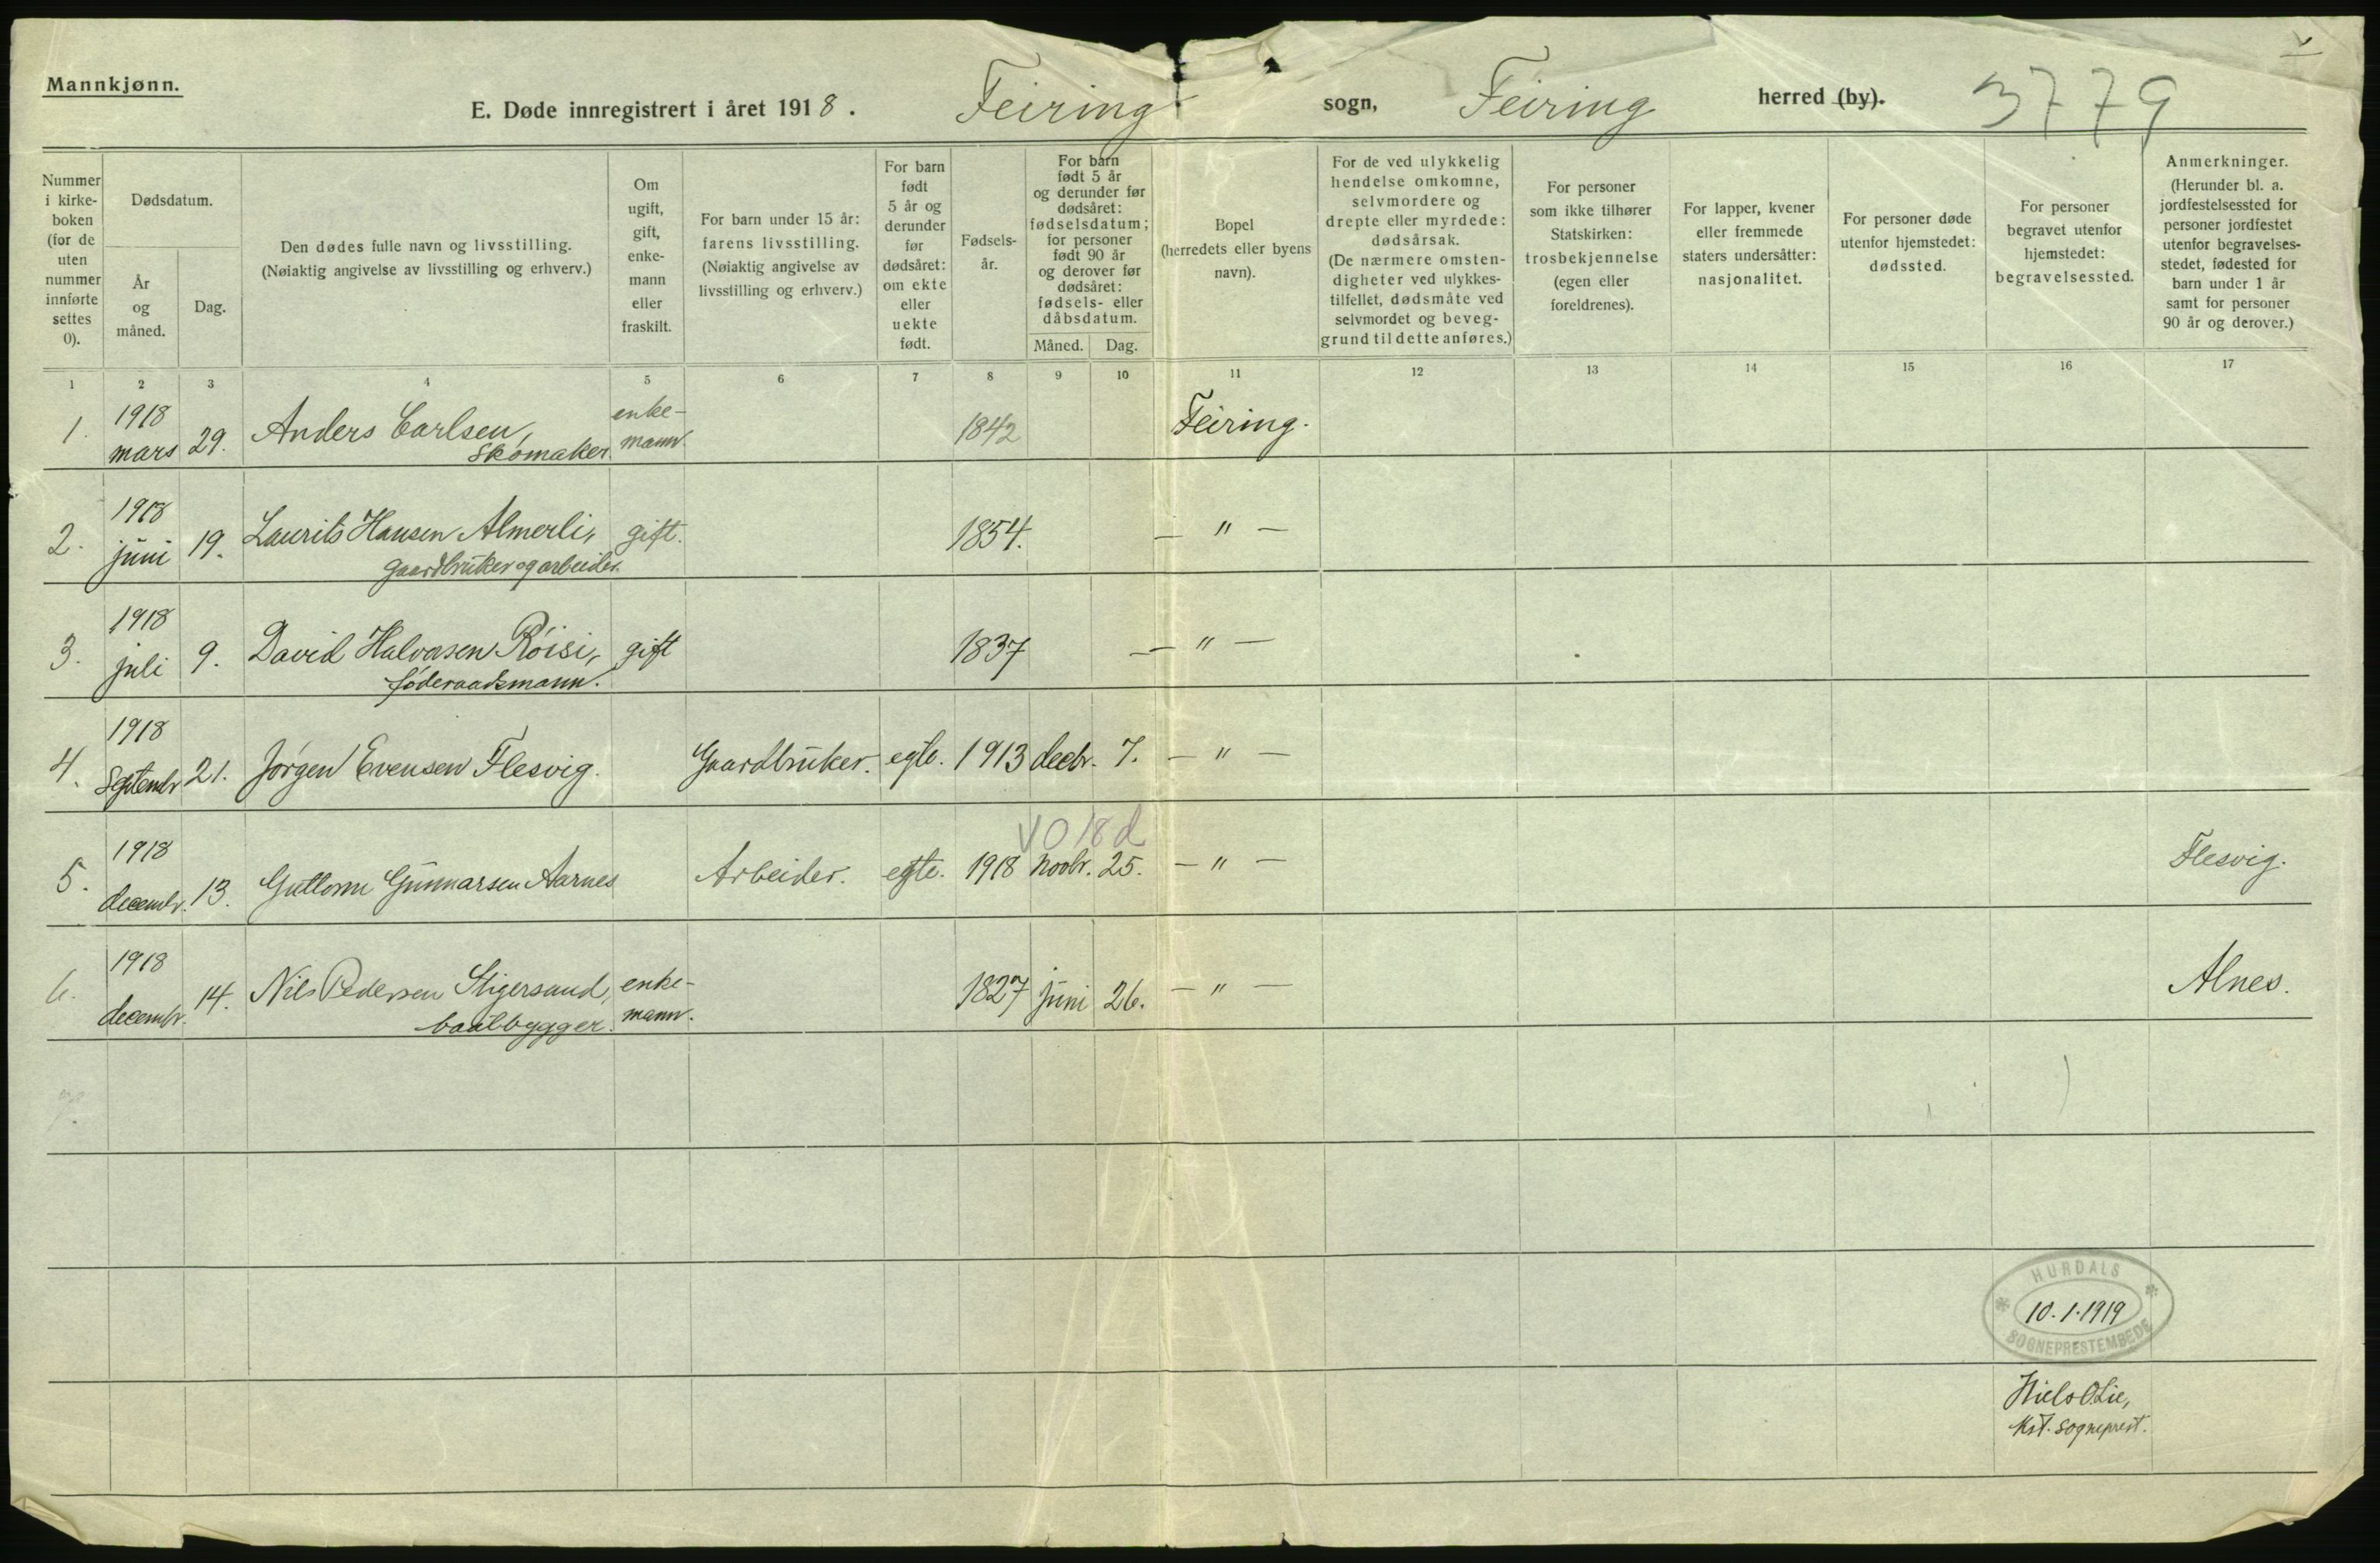 Mannkjønn.
E. Døde innregistrert i året 1918. Feiring sogn, Feiring herred (by). 3779
Nummer i kirke-boken (for de uten nummer innførte settes 0).
Dødsdatum.
År og måned.
Dag.
Den dødes fulle navn og livsstilling.
(Nøiaktig angivelse av livsstilling og erhverv.)
Om ugift, gift, enke-mann eller fraskilt.
For barn under 15 år: farens livsstilling.
(Nøiaktig angivelse av livsstilling og erhverv.)
For barn født 5 år og derunder før dødsåret: om ekte eller uekte født.
Fødsels-år.
For barn født 5 år og derunder før dødsåret: fødselsdatum; for personer født 90 år og derover før dødsåret: fødsels- eller dåbsdatum.
Måned. Dag.
Bopel (herredets eller byens navn).
For de ved ulykkelig hendelse omkomne, selvmordere og drepte eller myrdede: dødsårsak.
(De nærmere omsten-digheter ved ulykkes-tilfellet, dødsmåte ved selvmordet og beveg-grund til dette anføres.)
For personer som ikke tilhører Statskirken: trosbekjennelse (egen eller foreldrenes).
For lapper, kvener eller fremmede staters undersåtter: nasjonalitet.
For personer døde utenfor hjemstedet: dødssted.
For personer begravet utenfor hjemstedet: begravelsessted.
Anmerkninger.
(Herunder bl. a. jordfestelsessted for personer jordfestet utenfor begravelses-stedet, fødested for barn under 1 år samt for personer 90 år og derover.)
1 2 3 4 5 6 7 8 9 10 11 12 13 14 15 16 17
1. 1918 mars 29. Anders Carlsen, Skomaker. enke-mann. 1842 Feiring.
2. 1918 juni 19. Laurits Hansen Almerli, gaardbruker og arbeider. gift. 1854. — " —
3. 1918 juli 9. David Halvorsen Röisi, föderaadsmann. gift 1837 — " —
4. 1918 Septembr 21. Jörgen Evensen Flesvig. Gaardbruker. egte. 1913 decbr. 7. — " —
VO 18 d
5. 1918 decembr. 13. Guttorm Gunnarsen Aarnes Arbeider. egte. 1918 novbr. 25. — " — Flesvig.
6. 1918 decembr. 14. Nils Pedersen Stigersand, baatbygger. enke-mann. 1827 juni 26. — " — Alnes.
7.
HURDALS
10.1.1919
SOGNEPRESTEMBEDE
Niels O. Lie,
kst. sogneprest.